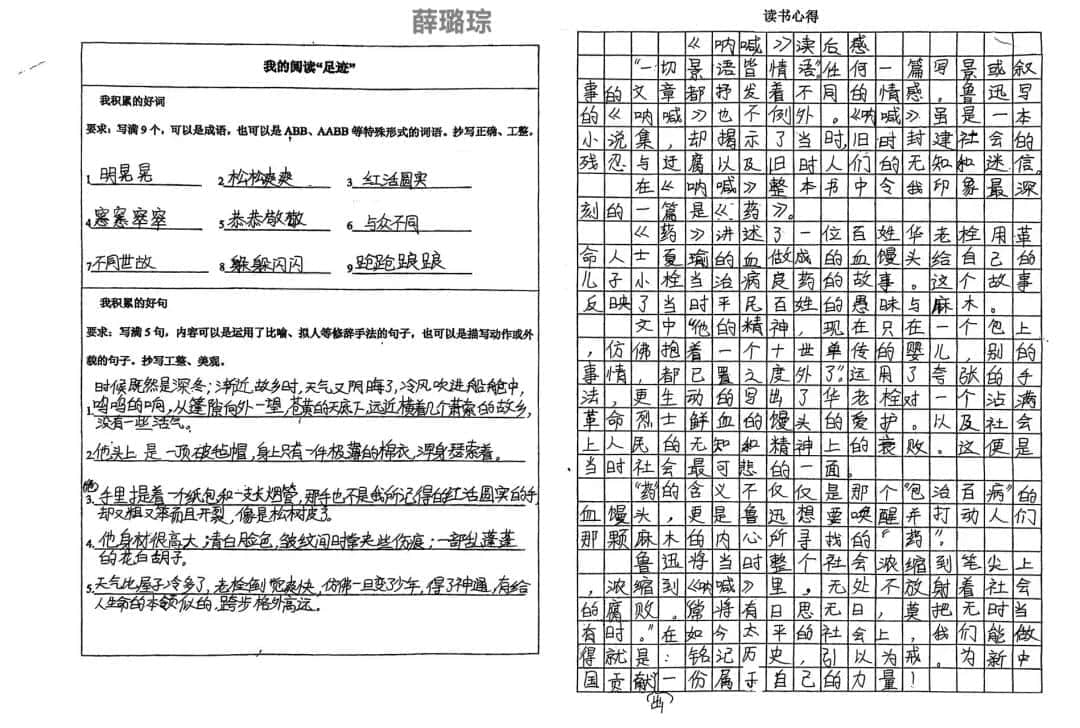 薛璐琮
我的阅读“足迹”
我积累的好词
要求：写满 9 个，可以是成语，也可以是 ABB、AABB 等特殊形式的词语。抄写正确、工整。
1 明晃晃 2 松松爽爽 3 红活圆实
4 窸窸窣窣 5 恭恭敬敬 6 与众不同
7 不同世故 8 躲躲闪闪 9 跑跑踉踉
我积累的好句
要求：写满 5 句，内容可以是运用了比喻、拟人等修辞手法的句子，也可以是描写动作或外
貌的句子。抄写工整、美观。
时候既然是深冬；渐近故乡时，天气又阴晦了，冷风吹进船舱中，
1. 呜呜的响，从篷隙向外一望，苍黄的天底下，远近横着几个萧索的故乡，
没有一些活气。
2. 他头上是一顶破毡帽，身上只有一件极薄的棉衣，浑身瑟索着。
3. 手里提着一个纸包和一支长烟管，那手也不是我所记得的红活圆实的手，
却又粗又笨而且开裂，像是松树皮了。
4. 他身材很高大；清白脸色，皱纹间时常夹些伤痕；一部乱蓬蓬
的花白胡子。
5. 天气比屋子冷多了，老栓倒觉爽快，仿佛一旦变少年，得了神通，有给
人生命的本领似的，跨步格外高远。
读书心得
《呐喊》读后感
“一切景语皆情语”。任何一篇写景或叙
事的文章都抒发着不同的情感，鲁迅写
的《呐喊》也不例外。《呐喊》虽是一本
小说集，却揭示了当时，旧时封建社会的
残忍与迂腐以及旧时人们的无知和迷信。
在《呐喊》整本书中令我印象最深
刻的一篇是《药》。
《药》讲述了一位百姓华老栓用革
命人士夏瑜的血做成的血馒头给自己的
儿子小栓当治病良药的故事。这个故事
反映了当时平民百姓的愚昧与麻木。
文中“他的精神，现在只在一个包上
，仿佛抱着一个十世单传的婴儿，别的
事情，都已置之度外了”。运用了夸张的手
法，更生动的写出了华老栓对一个沾满
革命烈士鲜血的馒头的爱护。以及社会
上人民的无知和精神上的衰败。这便是
当时社会最可悲的一面。
“药”的含义不仅仅是那个“包治百病”的
血馒头，更是鲁迅想要唤醒并打动人们
那颗麻木的内心所寻找的“药”。
鲁迅将当时整个社会浓缩到笔尖上
，浓缩到《呐喊》里，无处不放射着社会
的腐败。“常将有日思无日，莫把无时当
有时。”在如今太平的社会上，我们能做
得就是：铭记历史，引以为戒。为新中
国贡献一份属于自己的力量！